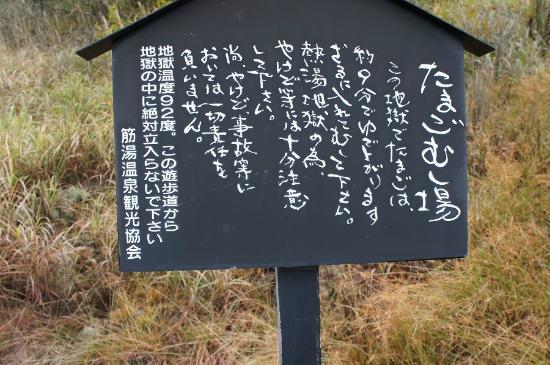 たまごむし場
この地獄でたまごは、
約９分でゆであがります
ざるに入れてむして下さい。
熱湯地獄の為
やけど等には十分注意
して下さい。
尚、やけど事故等に
おいては一切責任を
負いません。
地獄温度９２度。この遊歩道から
地獄の中に絶対立入らないで下さい
筋湯温泉観光協会